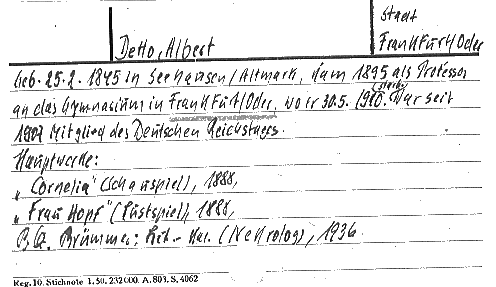 Stadt
Detto, Albert
Frankfurt/Oder
Geb. 25.2. 1845 in Seehausen/Altmark, kam 1895 als Professor
an das Gymnasium in Frankfurt/Oder, wo er 30.5. 1910 starb. War seit
Mitglied des Deutschen Reichstages.
Hauptwerke:
„Cornelia" (Schauspiel), 1888,
„Frau Hopf" (Lustspiel), 1888,
Brümmer: Lit.- (Nekrolog), 1936.
Reg. 10. Stichnote 1. 50. 232000. A. 803. S. 4062